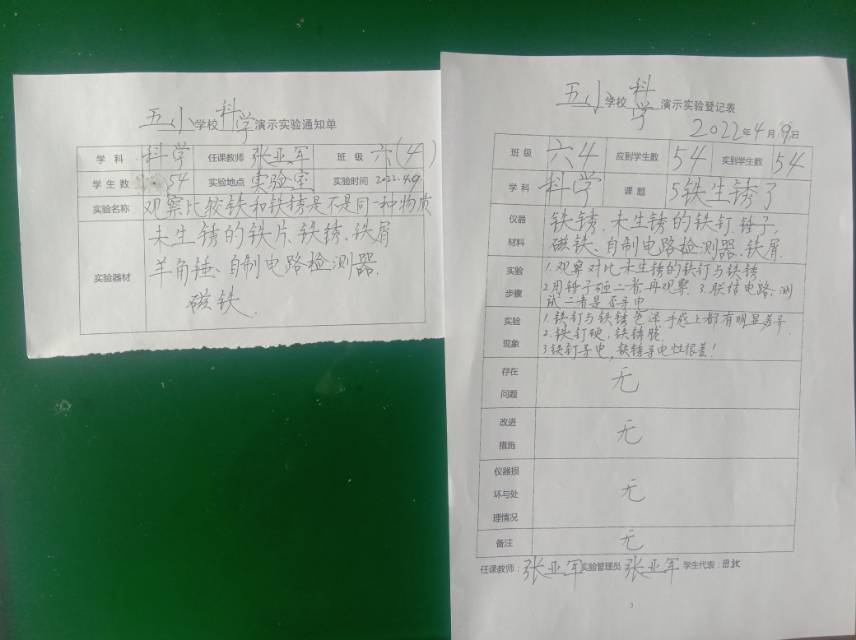 五小学校科学演示实验通知单
学科 科学 任课教师 张亚军 班级 六(4)
学生数 54 实验地点 实验室 实验时间 2022.4.9
实验名称 观察比较铁和铁锈是不是同一种物质
实验器材 未生锈的铁片、铁锈、铁屑
羊角锤、自制电路检测器.
磁铁.
五小学校科学演示实验登记表
2022年4月9日
班级 六4 应到学生数 54 实到学生数 54
学科 科学 课题 5铁生锈了
仪器材料 铁锈.未生锈的铁钉.锤子.
磁铁、自制电路检测器.铁屑.
实验步骤 1.观察对比未生锈的铁钉与铁锈
2.用锤子砸二者再观察.3.联结电路、测
试二者是否导电
实验现象 1.铁钉与铁锈色泽手感上都有明显差异.
2.铁钉硬,铁锈脆.
3.铁钉导电,铁锈导电性很差!
存在问题 无
改进措施 无
仪器损坏与处理情况 无
备注 无
任课教师:张亚军 实验管理员 张亚军 学生代表: